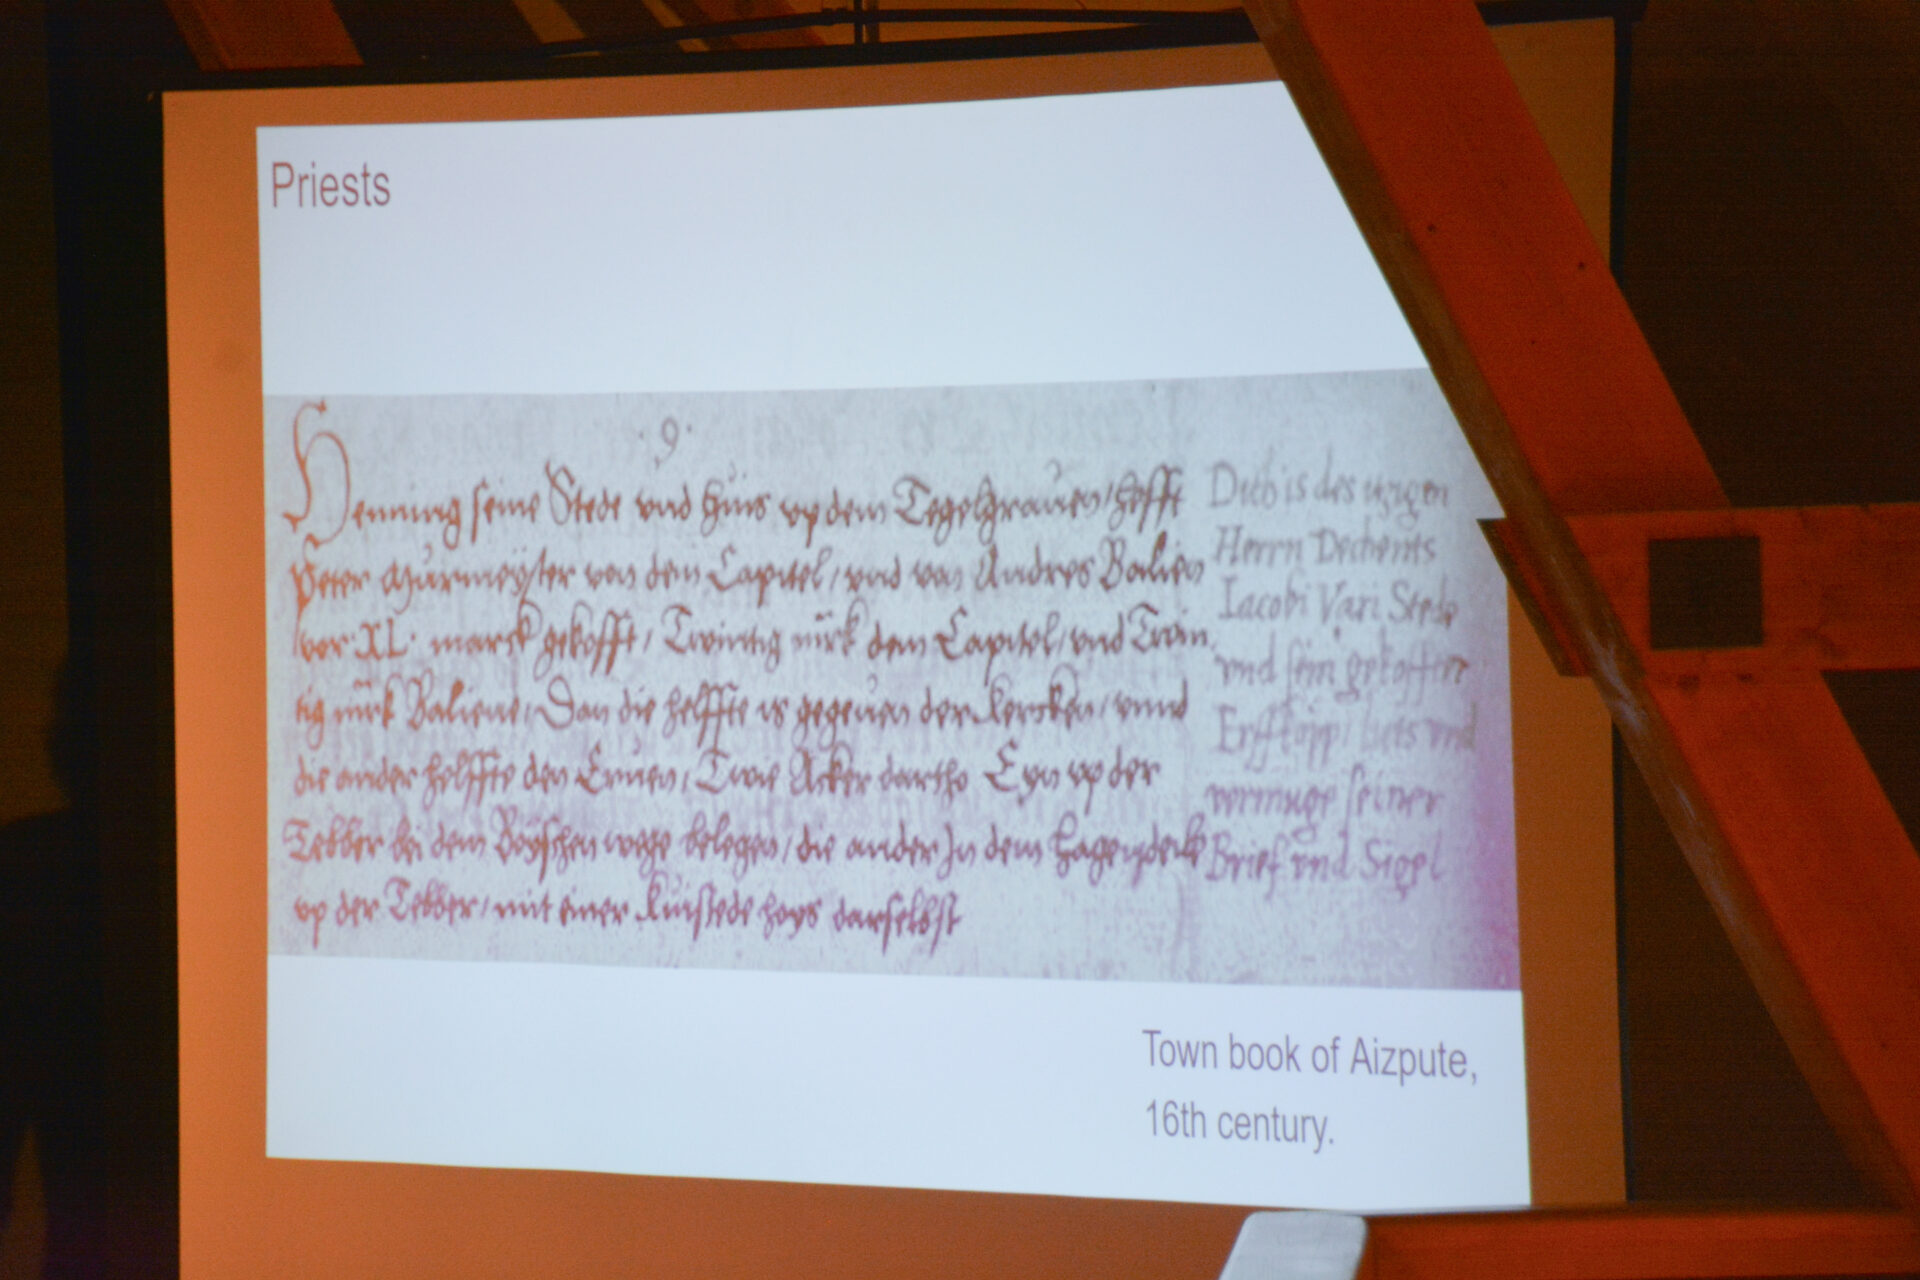 Priests
·9·
Henning seine Stede vnd huis vp dem Tegelgrauen / hefft
Peter Murmeyster von dem Capittel / vnd van Andres Balien
vor XL marck gekofft / Twintig mrk dem Capitel / vnd Twin
tig mrk Baliene / Dan die helffte is gegeuen der kercken / vnnd
die ander helffte den Eruen / Twie Acker dartho Eyn vp der
Tebber bei dem wege belegen / die ander In dem
vp der Tebber / mit einer darselbst
is des
Herrn Dechents
Iacobi Vari Stede
vnd sein
vnd
vermuge seiner
Brief vnd Sigel
Town book of Aizpute,
16th century.